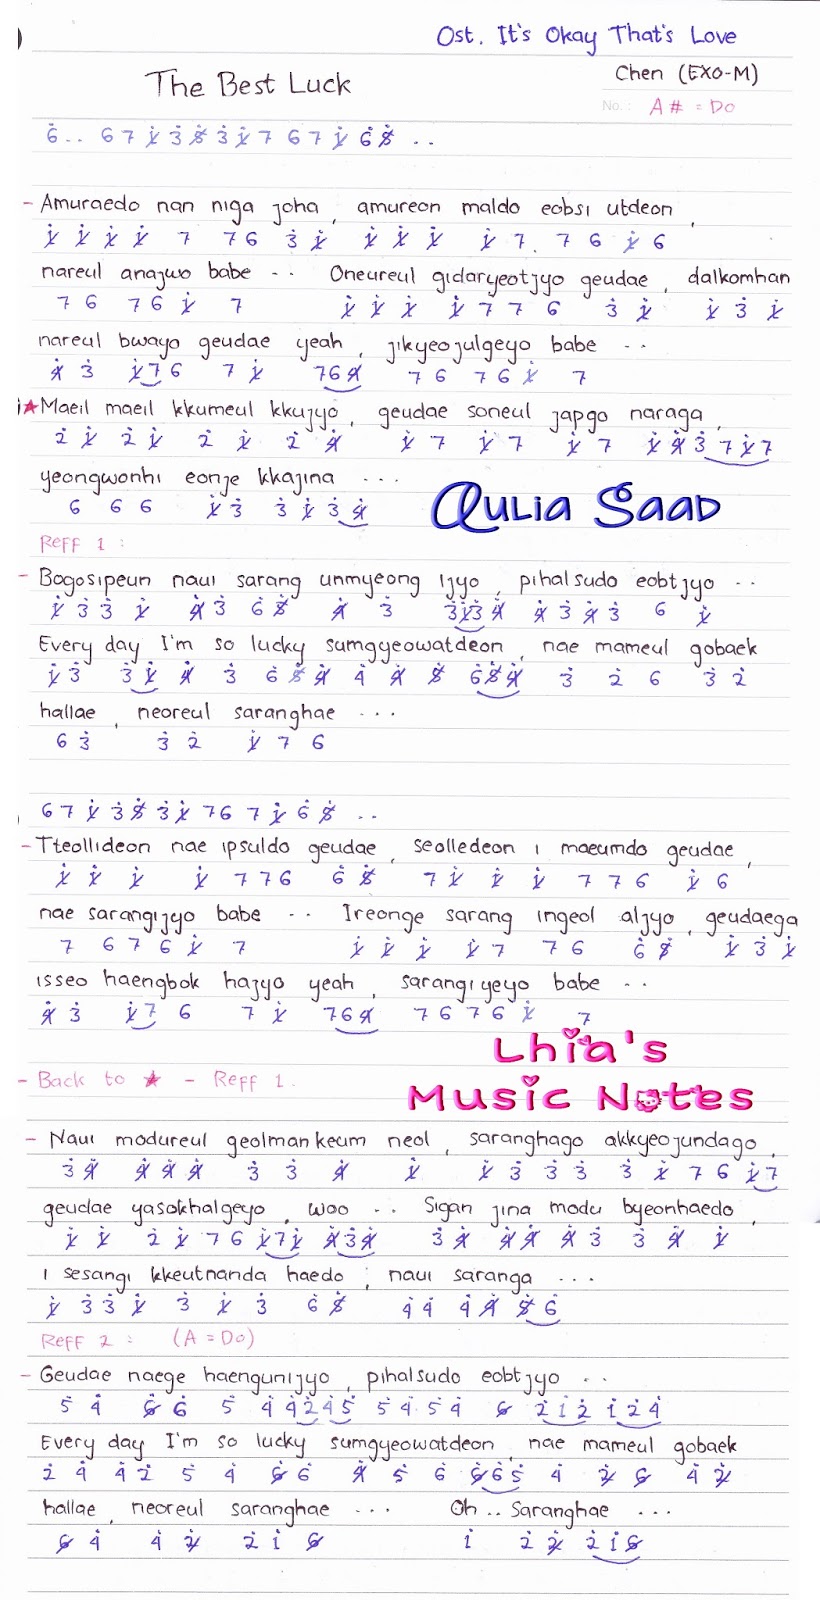 Ost. It's Okay That's Love
The Best Luck
Chen (EXO-M)
No.: A# = Do
6̇.. 6 7 1̸̇ 3̇ 5̸̇ 3̇ 1̸̇ 7 6 7 1̸̇ 6̇ 5̸̇ ..
- Amuraedo nan niga joha, amureon maldo eobsi utdeon,
1̸̇ 1̸̇ 1̸̇ 1̸̇ 7 7 6 3̇ 1̸̇ 1̸̇ 1̸̇ 1̸̇ 1̸̇ 7. 7 6 1̸̇ 6
nareul anajwo babe .. Oneureul gidaryeotjyo geudae, dalkomhan
7 6 7 6 1̸̇ 7 1̸̇ 1̸̇ 1̸̇ 1̸̇ 7 7 6 3̇ 1̸̇ 1̸̇ 3̇ 1̸̇
nareul bwayo geudae yeah, jikyeojulgeyo babe ..
4̸̇ 3̇ 1̸̇ 7 6 7 1̸̇ 7 6 4̸ 7 6 7 6 1̸̇ 7
★ Maeil maeil kkumeul kkujyo, geudae soneul japgo naraga,
2̇ 1̸̇ 2̇ 1̸̇ 2̇ 1̸̇ 2̇ 4̸̇ 1̸̇ 7 1̸̇ 7 1̸̇ 7 1̸̇ 4̸̇ 3̇ 7 1̸̇ 7
yeongwonhi eonje kkajina ...
6 6 6 1̸̇ 3̇ 3̇ 1̸̇ 3̇ 4̸̇
Qulia Saad
Reff 1 :
- Bogosipeun naui sarang unmyeong ijyo, pihalsudo eobtjyo ..
1̸̇ 3̇ 3̇ 1̸̇ 4̸̇ 3̇ 6̇ 5̸̇ 4̸̇ 3̇ 3̇ 1̸̇ 3̇ 4̸̇ 4̸̇ 3̇ 4̸̇ 3̇ 6 1̸̇
Every day I'm so lucky sumgyeowatdeon, nae mameul gobaek
1̸̇ 3̇ 3̇ 1̸̇ 4̸̇ 3̇ 6̇ 5̸̇ 4̸̇ 4̇ 4̸̇ 5̸̇ 6̇ 5̸̇ 4̸̇ 3̇ 2̇ 6 3̇ 2̇
hallae, neoreul saranghae ...
6 3̇ 3̇ 2̇ 1̸̇ 7 6
6 7 1̸̇ 3̇ 5̸̇ 3̇ 1̸̇ 7 6 7 1̸̇ 6̇ 5̸̇ ..
- Tteollideon nae ipsuldo geudae, seolledeon i maeumdo geudae,
1̸̇ 1̸̇ 1̸̇ 1̸̇ 7 7 6 6̇ 5̸̇ 7 1̸̇ 1̸̇ 1̸̇ 7 7 6 1̸̇ 6
nae sarangijyo babe .. Ireonge sarang ingeol aljyo, geudaega
7 6 7 6 1̸̇ 7 1̸̇ 1̸̇ 1̸̇ 1̸̇ 7 7 6 6̇ 5̸̇ 1̸̇ 3̇ 1̸̇
isseo haengbok hajyo yeah, sarangiyeyo babe ..
4̸̇ 3̇ 1̸̇ 7 6 7 1̸̇ 7 6 4̸ 7 6 7 6 1̸̇ 7
Lhia's
Music Notes
- Back to ★ - Reff 1.
- Naui modureul geolmankeum neol, saranghago akkyeojundago,
3̇ 4̸̇ 4̸̇ 4̸̇ 4̸̇ 3̇ 3̇ 4̸̇ 1̸̇ 1̸̇ 3̇ 3̇ 3̇ 3̇ 1̸̇ 7 6 1̸̇ 7
geudae yasokhalgeyo, woo .. Sigan jina modu byeonhaedo,
1̸̇ 1̸̇ 2̇ 1̸̇ 7 6 1̸̇ 7 1̸̇ 4̸̇ 3̇ 4̸̇ 3̇ 4̸̇ 4̸̇ 4̸̇ 4̸̇ 3̇ 3̇ 4̸̇ 1̸̇
i sesangi kkeutnanda haedo, naui saranga ...
1̸̇ 3̇ 3̇ 1̸̇ 3̇ 1̸̇ 3̇ 6̇ 5̸̇ 4̇ 4̇ 4̇ 4̸̇ 5̸̇ 6̇
Reff 2 : (A = Do)
- Geudae naege haengunijyo, pihalsudo eobtjyo ..
5̇ 4̇ 6̸̇ 6̇ 5̇ 4̇ 4̇ 2̇ 4̇ 5̇ 5̇ 4̇ 5̇ 4̇ 6̸ 2̇ 1̇ 2̇ 1̇ 2̇ 4̇
Every day I'm so lucky sumgyeowatdeon, nae mameul gobaek
2̇ 4̇ 4̇ 2̇ 5̇ 4̇ 6̸̇ 6̇ 4̸̇ 5̇ 6̇ 6̸̇ 6̇ 5̇ 4̇ 2̸̇ 6̸ 4̇ 2̸̇
hallae, neoreul saranghae ... Oh .. Saranghae ...
6̸ 4̇ 4̇ 2̸̇ 2̇ 1̇ 6̸ 1̇ 2̇ 2̸̇ 2̇ 1̇ 6̸